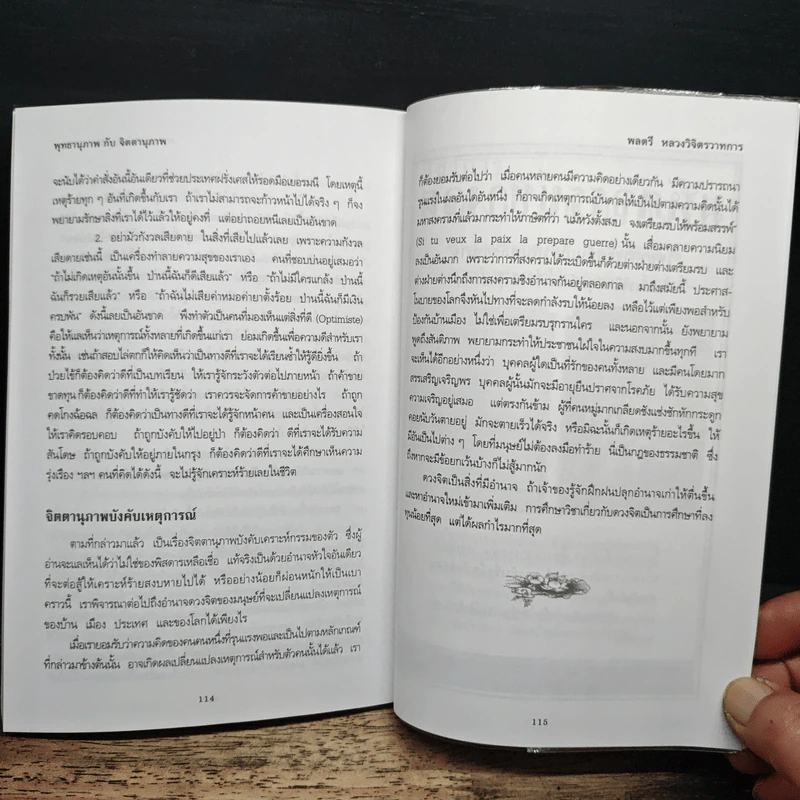 พุทธานุภาพ กับ จิตตานุภาพ
จะนับได้ว่าคำสั่งอันนี้อันเดียวที่ช่วยประเทศฝรั่งเศสให้รอดมือเยอรมนี โดยเหตุนี้
เหตุร้ายทุก ๆ อันที่เกิดขึ้นกับเรา ถ้าเราไม่สามารถจะก้าวหน้าไปได้จริง ๆ ก็จง
พยายามรักษาสิ่งที่เราได้ไว้แล้วให้อยู่คงที่ แต่อย่าถอยหนีเลยเป็นอันขาด
2. อย่ามัวกังวลเสียดาย ในสิ่งที่เสียไปแล้วเลย เพราะความกังวล
เสียดายเช่นนี้ เป็นเครื่องทำลายความสุขของเราเอง คนที่ชอบบ่นอยู่เสมอว่า
"ถ้าไม่เกิดเหตุอันนั้นขึ้น ป่านนี้ฉันก็ดีเสียแล้ว" หรือ "ถ้าไม่มีใครแกล้ง ป่านนี้
ฉันก็รวยเสียแล้ว" หรือ "ถ้าฉันไม่เสียค่าหมอค่ายาตั้งร้อย ป่านนี้ฉันก็มีเงิน
ครบพัน" ดังนี้เลยเป็นอันขาด พึงทำตัวเป็นคนที่มองเห็นแต่สิ่งที่ดี (Optimiste)
คือให้แลเห็นว่าเหตุการณ์ทั้งหลายที่เกิดขึ้นแก่เรา ย่อมเกิดขึ้นเพื่อความดีสำหรับเรา
ทั้งนั้น เช่นถ้าสอบไล่ตกก็ให้คิดเห็นว่าเป็นทางดีที่เราจะได้เรียนซ้ำให้รู้ดียิ่งขึ้น ถ้า
ป่วยไข้ก็ต้องคิดว่าดีที่เป็นบทเรียน ให้เรารู้จักระวังตัวต่อไปภายหน้า ถ้าค้าขาย
ขาดทุน ก็ต้องคิดว่าดีที่ทำให้เรารู้ชัดว่า เราควรจะจัดการค้าขายอย่างไร ถ้าถูก
คดโกงฉ้อฉล ก็ต้องคิดว่าเป็นทางที่เราจะได้รู้จักหน้าคน และเป็นเครื่องสอนใจ
ให้เราคิดรอบคอบ ถ้าถูกบังคับให้ไปอยู่ป่า ก็ต้องคิดว่า ดีที่เราจะได้รับความ
สันโดษ ถ้าถูกบังคับให้อยู่ภายในกรุง ก็ต้องคิดว่าดีที่เราจะได้ศึกษาเห็นความ
รุ่งเรือง ฯลฯ คนที่คิดได้ดังนี้ จะไม่รู้จักเคราะห์ร้ายเลยในชีวิต
จิตตานุภาพบังคับเหตุการณ์
ตามที่กล่าวมาแล้ว เป็นเรื่องจิตตานุภาพบังคับเคราะห์กรรมของตัว ซึ่งผู้
อ่านจะแลเห็นได้ว่าไม่ใช่ของพิสดารเหลือเชื่อ แท้จริงเป็นด้วยอำนาจหัวใจอันเดียว
ที่จะต่อสู้ให้เคราะห์ร้ายสงบหายไปได้ หรืออย่างน้อยก็ผ่อนหนักให้เป็นเบา
คราวนี้ เราพิจารณาต่อไปถึงอำนาจดวงจิตของมนุษย์ที่จะเปลี่ยนแปลงเหตุการณ์
ของบ้าน เมือง ประเทศ และของโลกได้เพียงไร
เมื่อเรายอมรับว่าความคิดของคนคนหนึ่งที่รุนแรงพอและเป็นไปตามหลักเกณฑ์
ที่กล่าวมาข้างต้นนั้น อาจเกิดผลเปลี่ยนแปลงเหตุการณ์สำหรับตัวคนนั้นได้แล้ว เรา
114
พลตรี หลวงวิจิตรวาทการ
ก็ต้องยอมรับต่อไปว่า เมื่อคนหลายคนมีความคิดอย่างเดียวกัน มีความปรารถนา
รุนแรงในผลอันใดอันหนึ่ง ก็อาจเกิดเหตุการณ์บันดาลให้เป็นไปตามความคิดนั้นได้
มหาสงครามที่แล้วมากระทำให้ภาษิตที่ว่า "แม้หวังตั้งสงบ จงเตรียมรบให้พร้อมสรรพ์"
(Si tu veux la paix la prepare guerre) นั้น เสื่อมคลายความนิยม
ลงเป็นอันมาก เพราะว่าการที่สงครามได้ระเบิดขึ้นก็ด้วยต่างฝ่ายต่างเตรียมรบ และ
ต่างฝ่ายต่างนึกถึงการสงครามชิงอำนาจกันอยู่ตลอดกาล มาถึงสมัยนี้ ประศาส-
โนบายของโลกจึงหันไปทางที่จะลดกำลังรบให้น้อยลง เหลือไว้แต่เพียงพอสำหรับ
ป้องกันบ้านเมือง ไม่ใช่เพื่อเตรียมรบรุกรานใคร และนอกจากนั้น ยังพยายาม
พูดถึงสันติภาพ พยายามกระทำให้ประชาชนใฝ่ใจในความสงบมากขึ้นทุกที เรา
จะเห็นได้อีกอย่างหนึ่งว่า บุคคลผู้ใดเป็นที่รักของคนทั้งหลาย และมีคนโดยมาก
สรรเสริญเจริญพร บุคคลผู้นั้นมักจะมีอายุยืนปราศจากโรคภัย ได้รับความสุข
ความเจริญอยู่เสมอ แต่ตรงกันข้าม ผู้ที่คนหมู่มากเกลียดชังแช่งชักหักกระดูก
คอยนับวันตายอยู่ มักจะตายเร็วได้จริง หรือมิฉะนั้นก็เกิดเหตุร้ายอะไรขึ้น ให้
มีอันเป็นไปต่าง ๆ โดยที่มนุษย์ไม่ต้องลงมือทำร้าย นี่เป็นกฎของธรรมชาติ ซึ่ง
ถึงหากจะมีข้อยกเว้นบ้างก็ไม่สู้มากนัก
ดวงจิตเป็นสิ่งที่มีอำนาจ ถ้าเจ้าของรู้จักฝึกฝนปลุกอำนาจเก่าให้ตื่นขึ้น
และหาอำนาจใหม่เข้ามาเพิ่มเติม การศึกษาวิชาเกี่ยวกับดวงจิตเป็นการศึกษาที่ลง
ทุนน้อยที่สุด แต่ได้ผลกำไรมากที่สุด
115